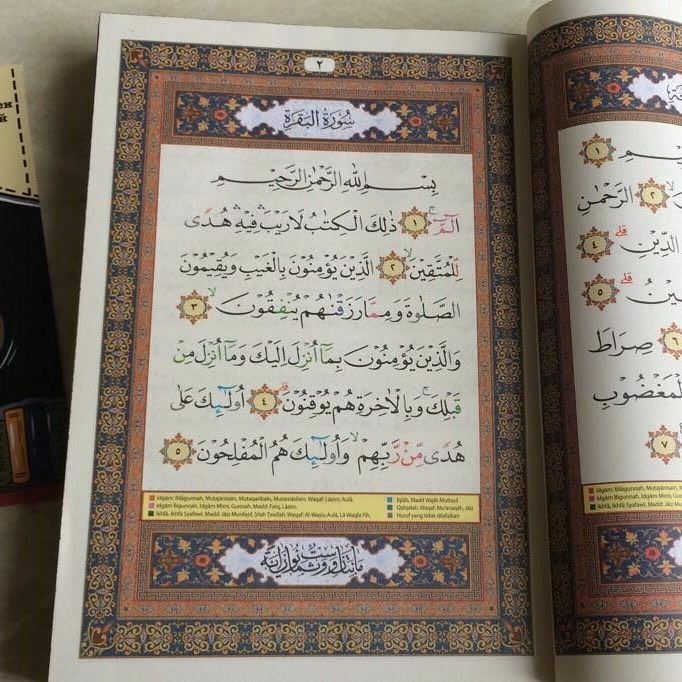 ен
й
٢
سُورَةُ الْبَقَرَةِ
بِسْمِ اللهِ الرَّحْمٰنِ الرَّحِيْمِ
الٓمّٓ ۚ ١ ذٰلِكَ الْكِتٰبُ لَا رَيْبَ ۛ فِيْهِ ۛ هُدًى
لِّلْمُتَّقِيْنَ ۙ ٢ الَّذِيْنَ يُؤْمِنُوْنَ بِالْغَيْبِ وَيُقِيْمُوْنَ
الصَّلٰوةَ وَمِمَّا رَزَقْنٰهُمْ يُنْفِقُوْنَ ۙ ٣
وَالَّذِيْنَ يُؤْمِنُوْنَ بِمَآ اُنْزِلَ اِلَيْكَ وَمَآ اُنْزِلَ مِنْ
قَبْلِكَ ۚ وَبِالْاٰخِرَةِ هُمْ يُوْقِنُوْنَ ۗ ٤ اُولٰۤىِٕكَ عَلٰى
هُدًى مِّنْ رَّبِّهِمْ ۙ وَاُولٰۤىِٕكَ هُمُ الْمُفْلِحُوْنَ ٥
Idgām: Bilāgunnah, Mutajānisain, Mutaqāribain, Mutamāṡilain: Waqaf: Lāzim; Aulā.
Idgām Bigunnah, Idgām Mimi, Gunnah, Madd: Farq, Lāzim:
Ikhfā, Ikhfā Syafawi, Madd: Jāiz Munfaṣil, Ṣilah Ṭawīlah: Waqaf: Al-Waṣlu Aulā, Lā Waqfa Fih.
Iqlāb, Madd Wajib Muttaṣil
Qalqalah. Waqaf: Mu'anaqah, Jāiz
Huruf yang tidak dilafalkan
١
مِ
٢ الرَّحْمٰنِ
الدِّيْنِ ۗ ٤
ۗ ٥
٦ صِرَاطَ
الْمَغْضُوْبِ
٧
Idgām: Bilāgunnah, Mutajānisain
Idgām Bigunnah, Idgām Mimi, Gu
Ikhfā, Ikhfā Syafawi, Madd: Jāiz Mu